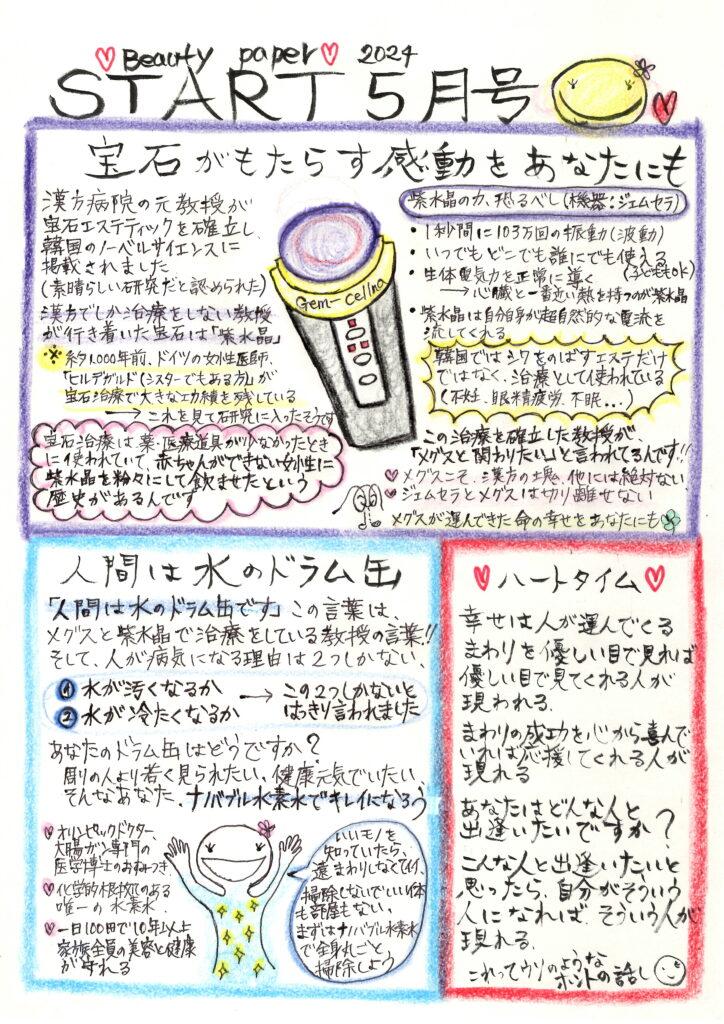 Beauty paper 2024
START 5月号
宝石がもたらす感動をあなたにも
漢方病院の元教授が
宝石エステティックを確立し、
韓国のノーベルサイエンスに
掲載されました
(素晴らしい研究だと認められた)
漢方でしか治療をしない教授
が行き着いた宝石は「紫水晶」
※ 約1,000年前、ドイツの女性医師、
「ヒルデガルド(シスターでもある方)」が
宝石治療で大きな功績を残している
→これを見て研究に入ったそうです
宝石治療は、薬・医療道具が少なかったとき
に使われていて、赤ちゃんができない女性に
紫水晶を粉々にして飲ませたという
歴史があるんです
Gem-Cellna
紫水晶の力、恐るべし(機器:ジェムセラ)
・1秒間に103万回の振動(波動)
・いつでもどこでも誰にでも使える
(子どももOK)
・生体電気力を正常に導く
→心臓と一番近い熱を持つのが紫水晶
・紫水晶は自分自身が超自然的な電流を
流してくれる
韓国ではシワをのばすエステだけ
ではなく、治療として使われている
(不妊、眼精疲労、不眠...)
この治療を確立した教授が、
「メグスと関わりたい」と言われてるんです!!
メグスこそ、漢方の塊、他には絶対ない
ジェムセラとメグスは切り離せない
メグスが運んできた命の幸せをあなたにも
人間は水のドラム缶
「人間は水のドラム缶です」この言葉は、
メグスと紫水晶で治療をしている教授の言葉!!
そして、人が病気になる理由は2つしかない、
① 水が汚くなるか
② 水が冷たくなるか
→この2つしかないと
はっきり言われました
あなたのドラム缶はどうですか?
周りの人より若く見られたい、健康元気でいたい
そんなあなた、ナノバブル水素水でキレイになろう
オリンピックドクター、
大腸ガン専門の
医学博士のおすみつき
化学的根拠のある
唯一の水素水
一日100円で10年以上
家族全員の美容と健康
が守れる
いいモノを
知っていたら、
遠まわりしなくてイイ、
掃除しないでいい体
も部屋もない、
まずはナノバブル水素水
で全身丸ごと
掃除しよう
ハートタイム
幸せは人が運んでくる
まわりを優しい目で見れば
優しい目で見てくれる人が
現われる
まわりの成功を心から喜んで
いれば応援してくれる人が
現れる
あなたはどんな人と
出逢いたいですか?
こんな人と出逢いたいと
思ったら、自分がそういう
人になれば、そういう人が
現れる
これってウソのような
ホントの話し